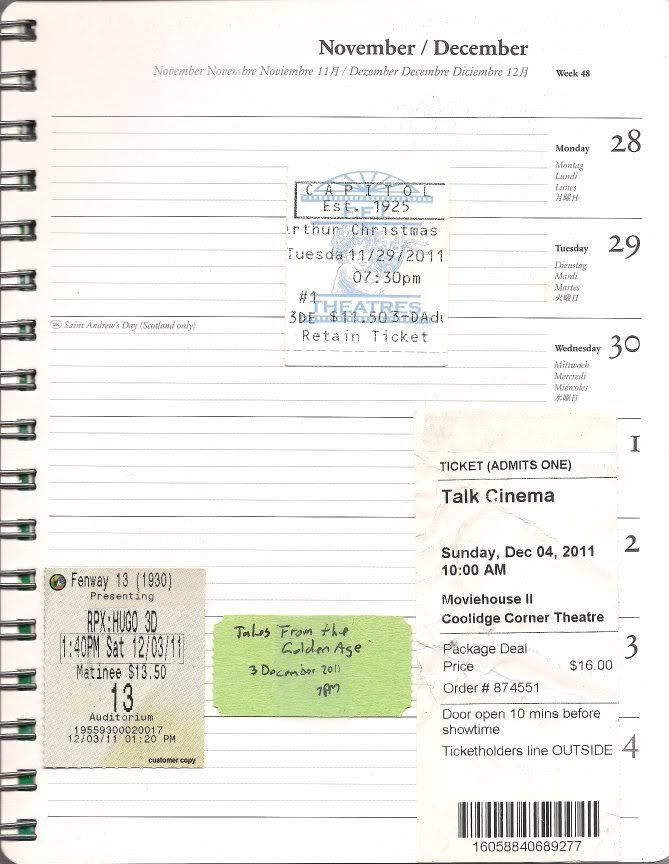 November / December
November Novembre Noviembre 11月 / Dezember Decembre Diciembre 12月
Week 48
Monday 28
Montag
Lundi
Lunes
月曜日
CAPITOL
Est. 1925
F.E.I.
rthur Christmas
Tuesda 11/29/2011
07:30pm
#1
THEATRES
3DE $11.50 3-DAdu
Retain Ticket
Tuesday 29
Dienstag
Mardi
Martes
火曜日
UK Saint Andrew's Day (Scotland only)
Wednesday 30
Mittwoch
Mercredi
Miércoles
水曜日
1
2
3
4
TICKET (ADMITS ONE)
Talk Cinema
Sunday, Dec 04, 2011
10:00 AM
Moviehouse II
Coolidge Corner Theatre
Package Deal
Price $16.00
Order # 874551
Door open 10 mins before
showtime
Ticketholders line OUTSIDE
16058840689277
Fenway 13 (1930)
Presenting
RPX:HUGO 3D
1:40PM Sat 12/03/11
Matinee $13.50
13
Auditorium
19559300020017
12/03/11 01:20 PM
customer copy
Tales From the
Golden Age
3 December 2011
7PM